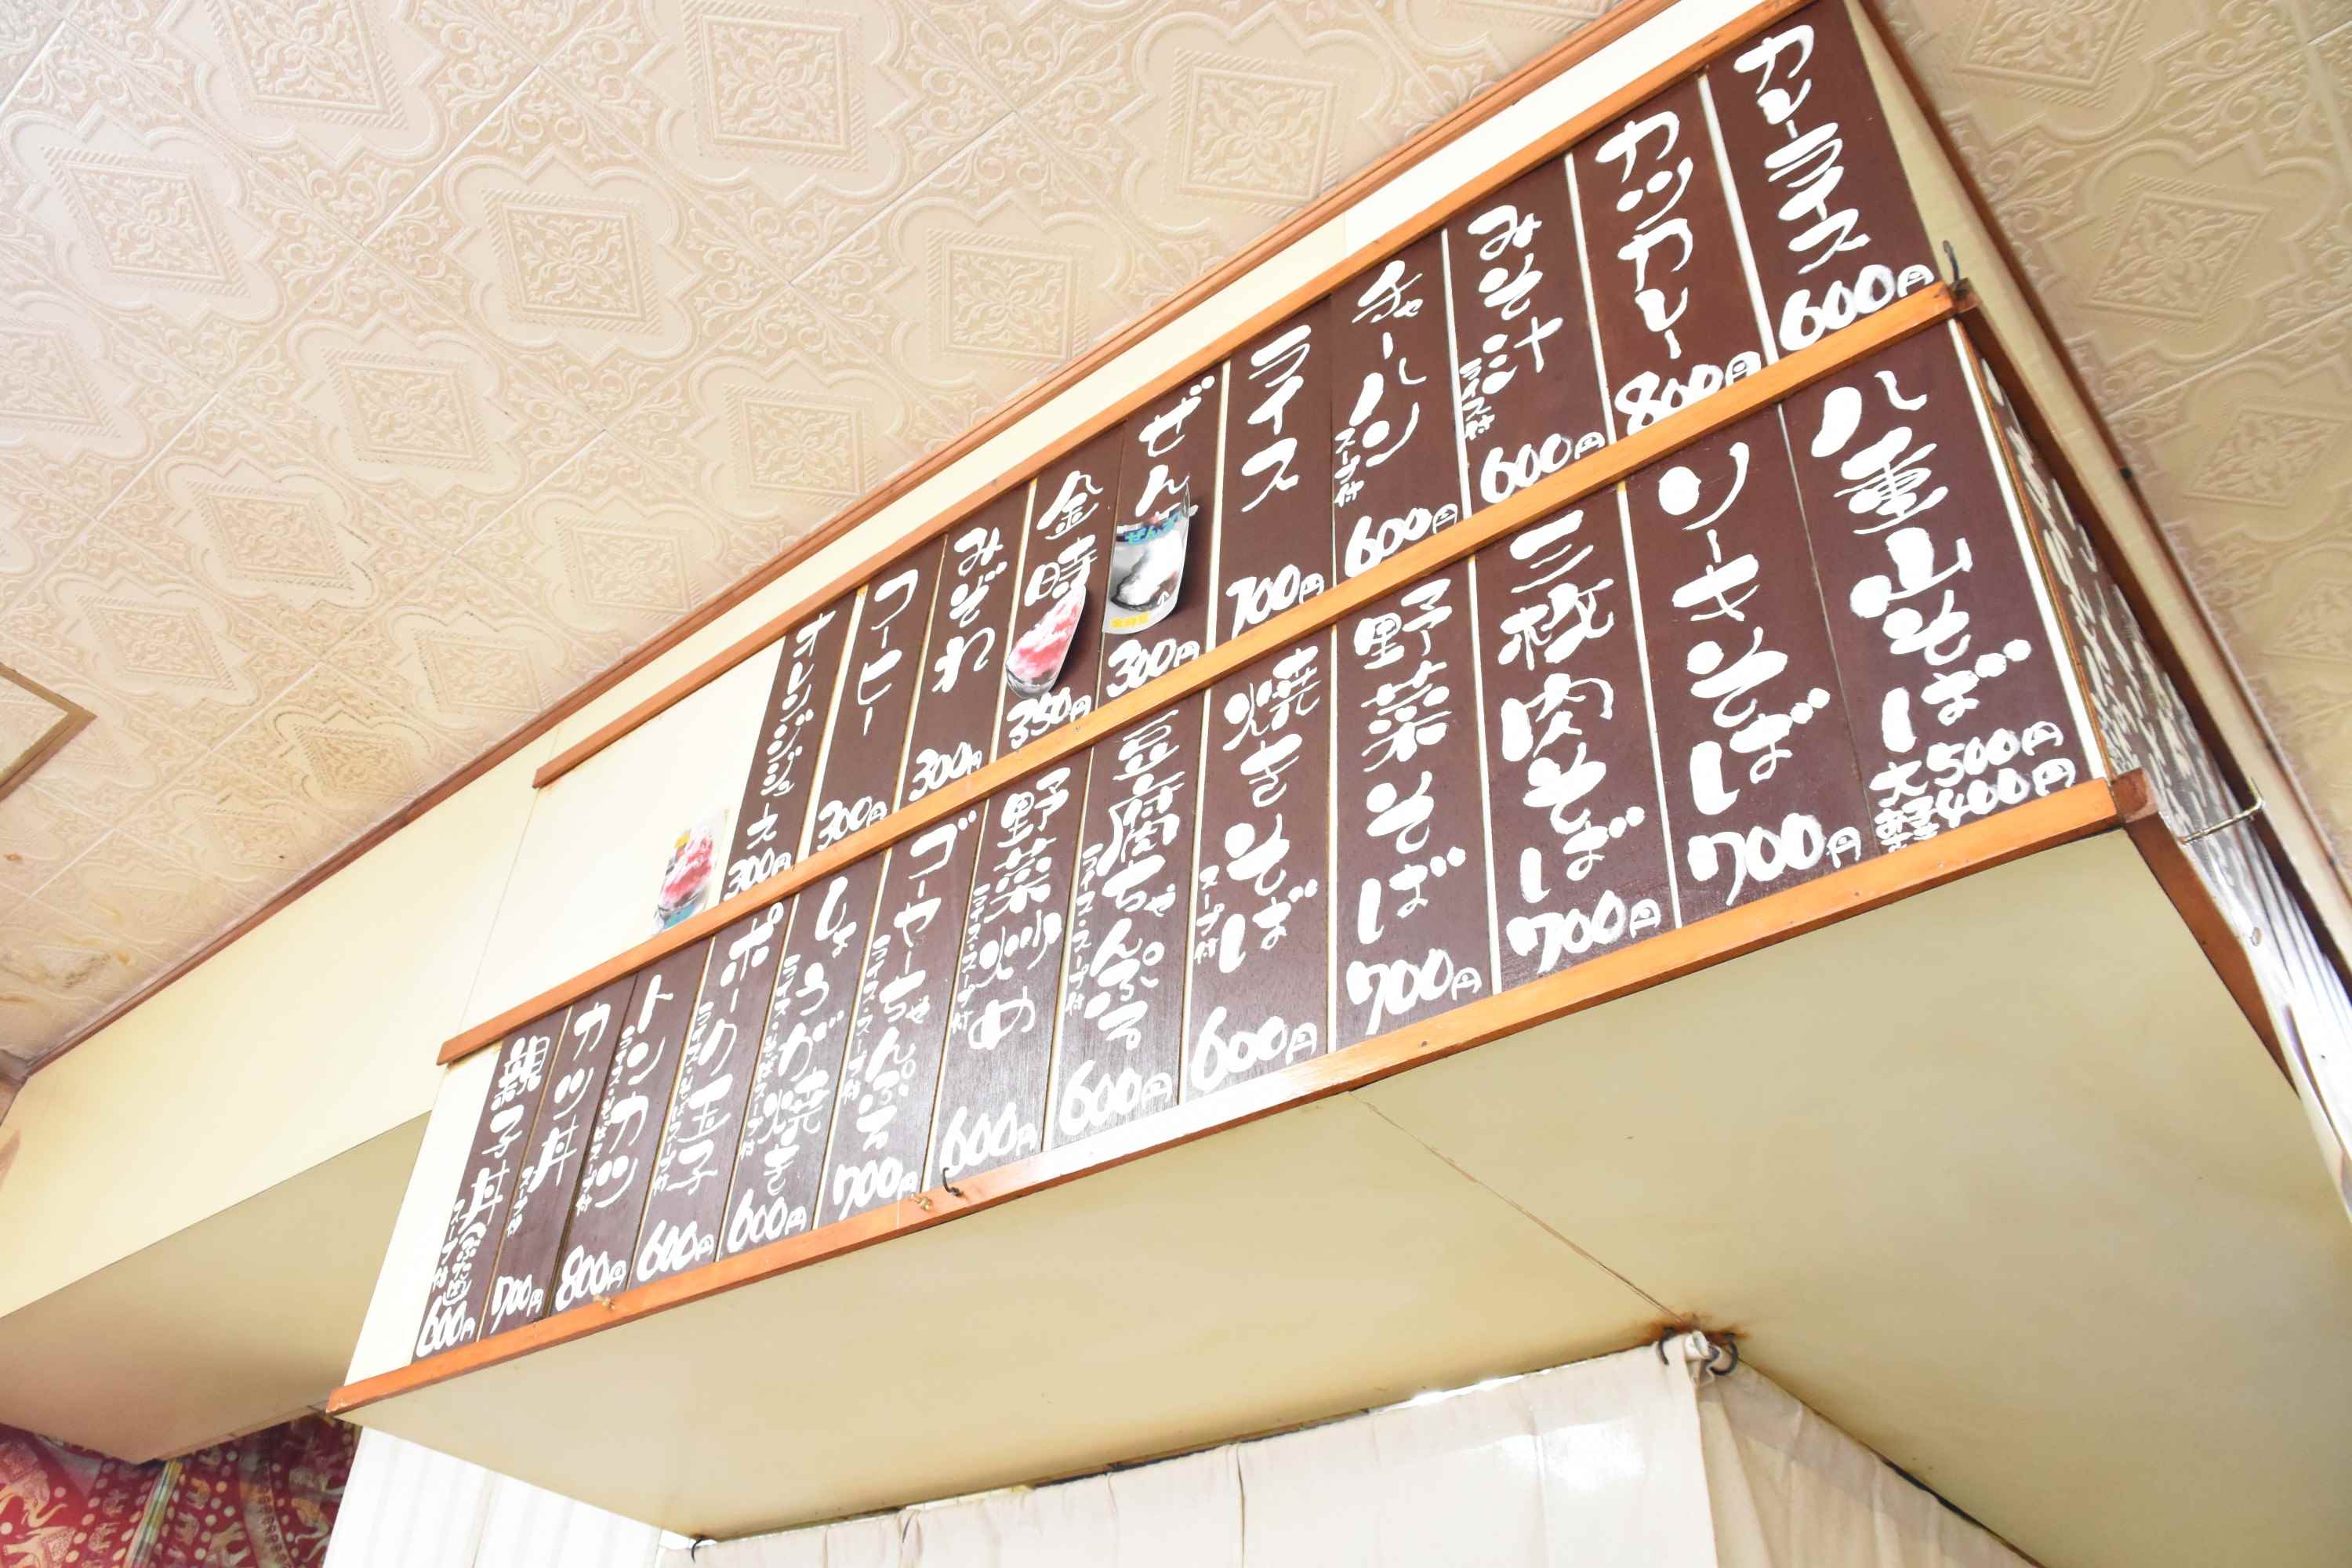 カレーライス 600円
カツカレー 800円
みそ汁 ライス付 600円
チャーハン スープ付 600円
ライス 700円
ぜん 300円
金時 350円
みぞれ 300円
コーヒー 300円
オレンジジュース 300円
八重山そば 大500円 400円
ソーキそば 700円
三枚肉そば 700円
野菜そば 700円
焼きそば スープ付 600円
豆腐ちゃんぷる ライス・スープ付 600円
野菜炒め ライス・スープ付 600円
ゴーヤーちゃんぷる ライス・スープ付 700円
しょうが焼き ライス・そばスープ付 600円
ポーク玉子 ライス・そばスープ付 600円
トンカツ ライス・そばスープ付 800円
カツ丼 スープ付 700円
親子丼 スープ付 600円